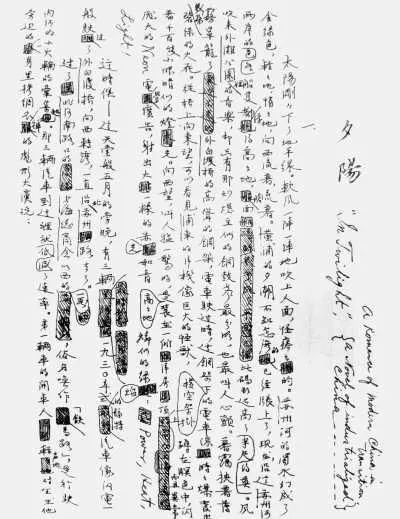 夕陽
"In Twilight," (a Novel of industrialized China......)
A Romance of modern China in transition
一、
太陽剛剛下了地平線。軟風一陣一陣地吹上人面,怪癢癢的。蘇州河的濁水幻成了
金綠色,輕輕地,悄悄地,向西流去。黃浦的夕潮不知怎的已經漲上了,現在沿這蘇州河
兩岸的各色船隻都浮得高高地,艙面比碼頭還高了約莫半尺。風
吹來外灘公園的音樂,却只有那炒豆似的銅鼓聲最分明,也最叫人心顫。暮靄挾着薄
霧籠罩了外白渡橋的高聳的鋼架,電車駛過時,這鋼架下橫空架掛的電車線時時爆發出幾朵
碧綠的火花。從橋上向東望,可以看見浦東的洋棧像巨大的怪獸,蹲在暝色中,閃
着千百隻小眼睛似的燈火。向西望,叫人猛一驚的,是裝在一所洋房頂上而且異常
龐大的 Neon 電管廣告,射出火一樣的赤光和青燐似的綠焰:Light, Heat, Power
這時候——這天堂般五月的傍晚,有三輛一九三〇年式的汽車像閃電一
般駛過了外白渡橋,向西轉彎,一直沿北蘇州路去了。
過了北河南路口的上海總商會以西的一段,俗名喚作「鐵馬路」,是行駛
內河的小火輪的彙集處。那三輛汽車到這裏就減低了速率。第一輛車的開車人輕聲地對坐在他
旁邊的穿一身黑拷綢衣褲的彪形大漢說: